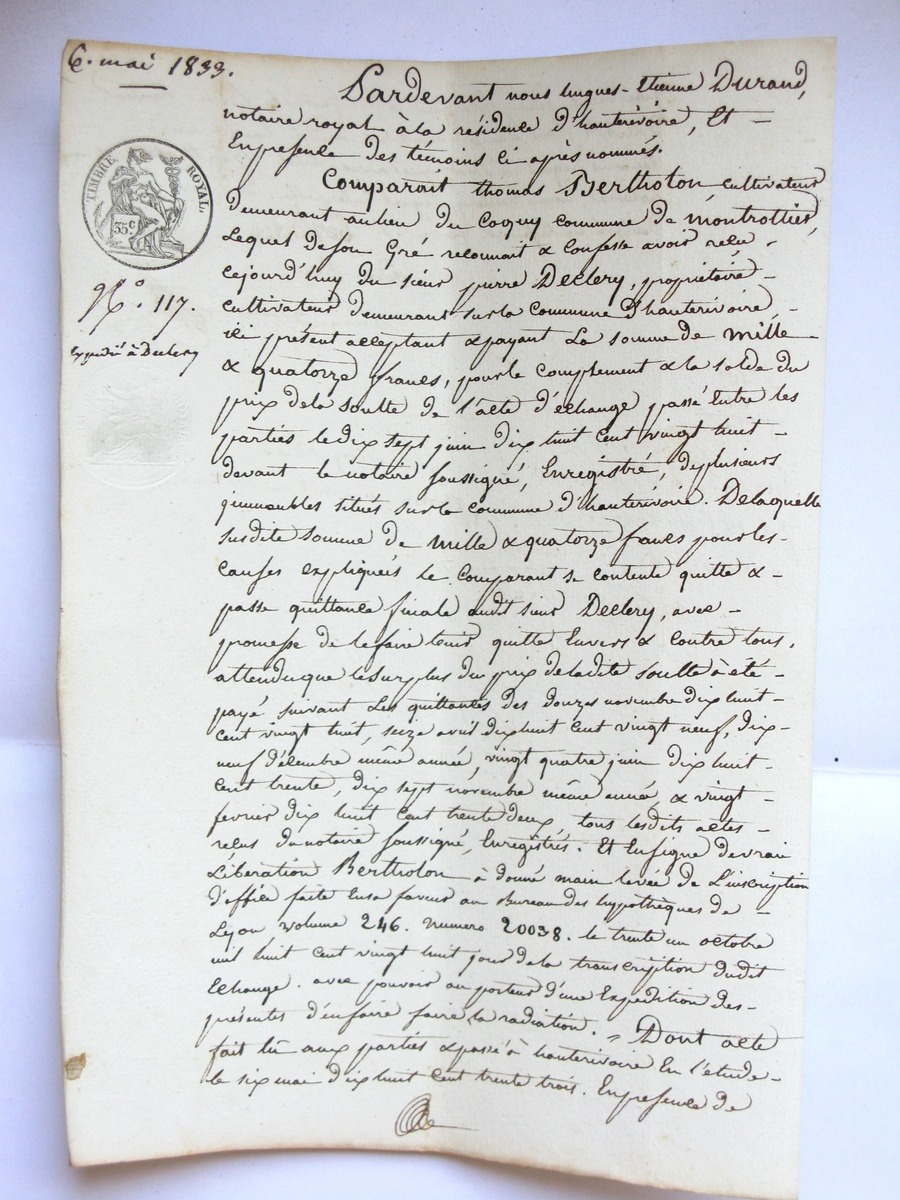 6. mai 1833.
Pardevant nous hugues-Etienne Durand,
notaire royal à la résidence d'hauterivoire, Et
En presence des témoins ci après nommés.
Comparait thomas Bertholon cultivateur
TIMBRE ROYAL
35 c
demeurant au lieu du Coquy commune de montrottier,
Lequel de son Gré reconnait & confesse avoir reçu
cejourd'huy du sieur pierre Declery, propriétaire
N.º 117.
cultivateur demeurant sur la commune d'hauterivoire,
Expédié à Declery
ici présent acceptant & payant La somme de mille
& quatorze francs, pour le complement & la solde du
prix de la soulte de l'acte d'échange passé Entre les
parties le dix sept juin dix huit cent vingt huit
devant le notaire soussigné, Enregistré, de plusieurs
immeubles situés sur la commune d'hauterivoire. De laquelle
susdite somme de mille & quatorze francs pour les
causes expliquées le comparant se contente quitte &
passe quittance finale audit sieur Declery, avec
promesse de le faire tenir quitte Envers & contre tous,
attendu que le surplus du prix de la dite soulte à été
payé suivant Les quittances des douze novembre dix huit
cent vingt huit, seize avril dix huit cent vingt neuf, dix
neuf décembre même année, vingt quatre juin dix huit
cent trente, dix sept novembre même année & vingt
fevrier dix huit cent trente deux, tous lesdits actes
reçus du notaire soussigné, Enregistrés. Et En signe de vraie
Libération Bertholon à donné main levée de L'inscription
d'office faite En sa faveur au Bureau des hypothèques de
Lyon volume 246. numero 20038. le trente un octobre
mil huit cent vingt huit jour de la transcription dudit
Echange. avec pouvoir au porteur d'une Expédition des
présentes d'en faire faire la radiation. = Dont acte
fait lû aux parties & passé à hauterivoire En l'etude
le six mai dix huit cent trente trois. En presence de